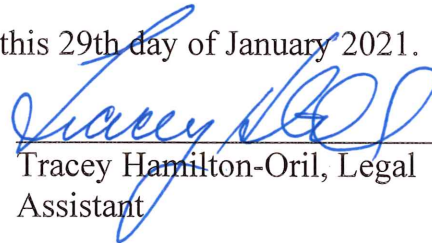 this 29th day of January 2021.
Tracey Hamilton-Oril, Legal
Assistant